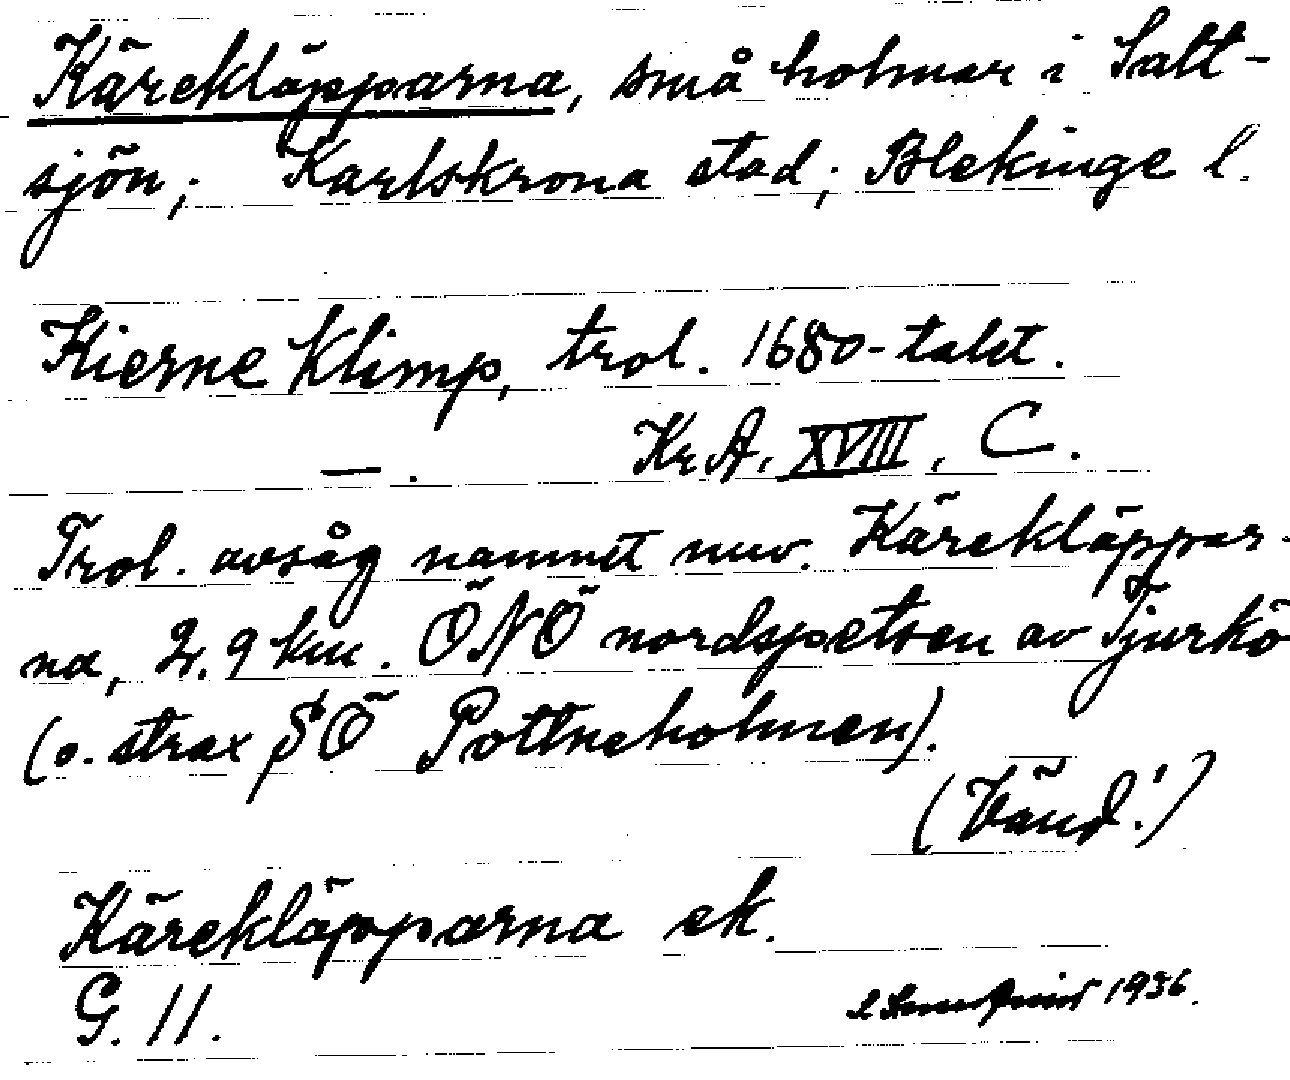 Kärekläpparna, små holmar i Salt-
sjön; Karlskrona stad; Blekinge l.
Kierne Klimp, trol. 1680-talet.
—. Kr.A. XVIII, C.
Trol. avsåg namnet nuv. Käreklappar-
na, 2.9 km. ÖNÖ nordspetsen av Tjurkö
(o. strax SÖ Pottneholmen).
(Vänd!)
Kärekläpparna ek.
G. 11.
1936.